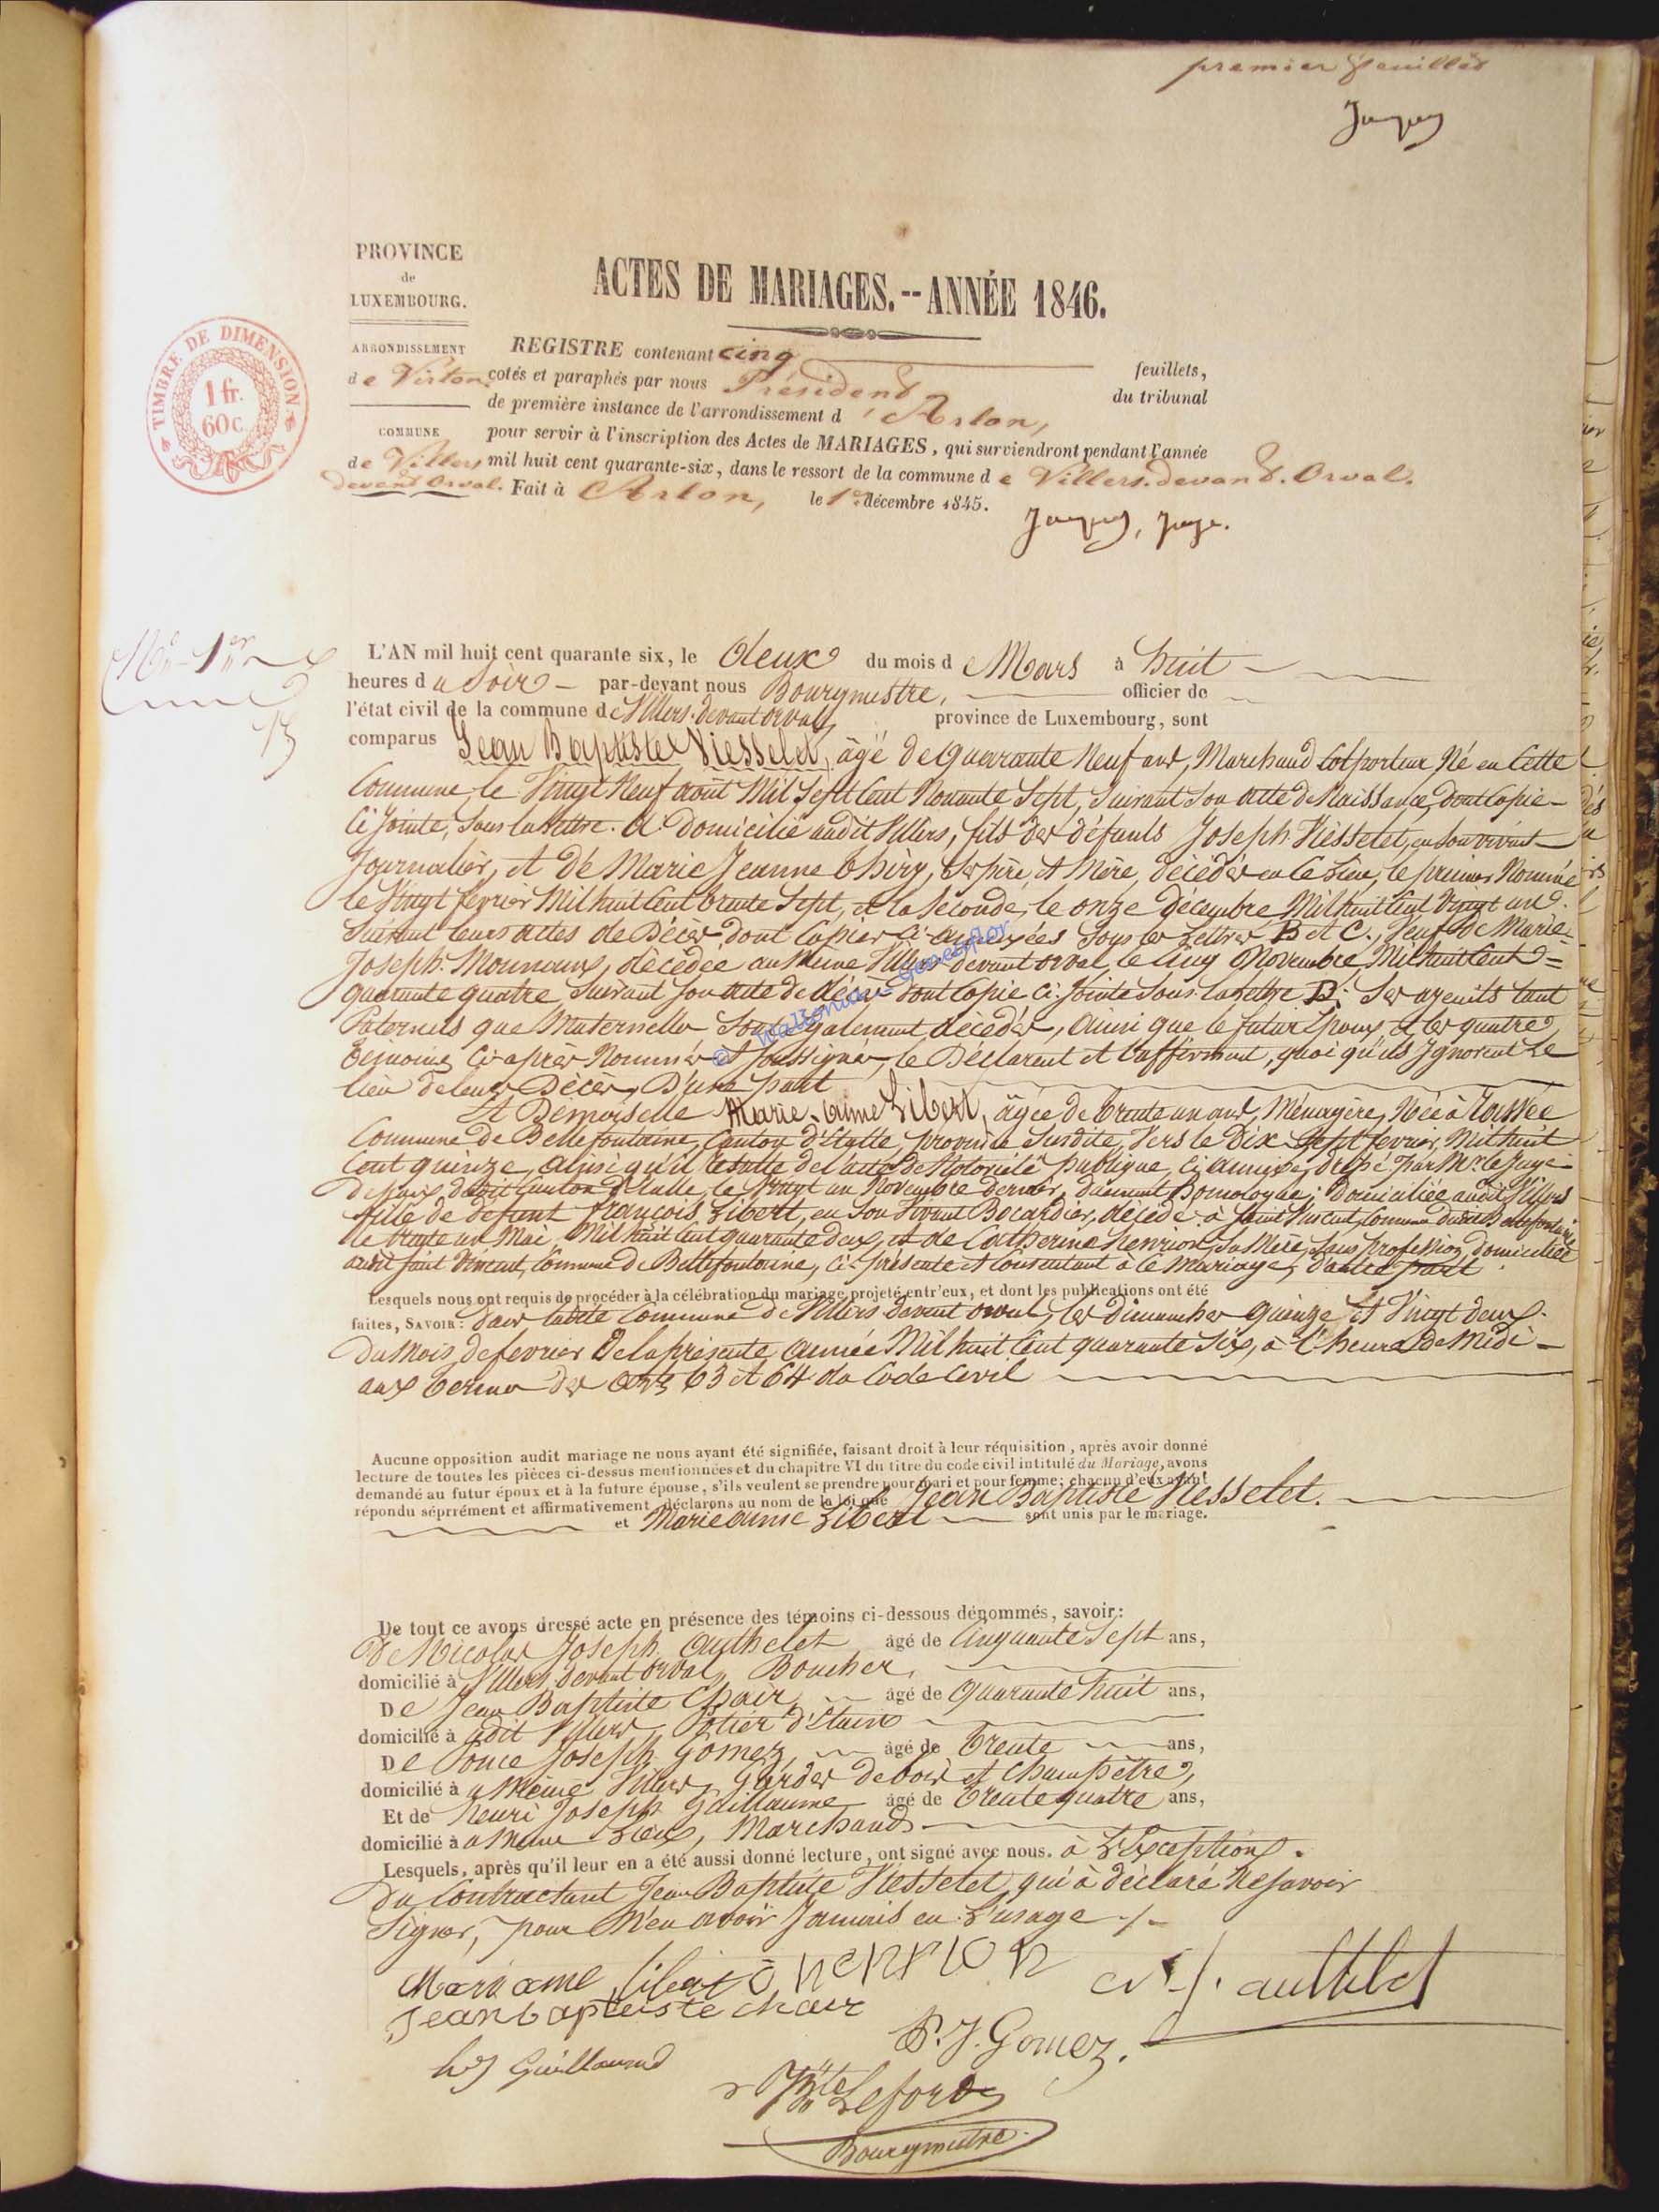 premier feuillet
PROVINCE
de
LUXEMBOURG.
ARRONDISSEMENT
de Virton.
COMMUNE
de Villers
devant Orval.
TIMBRE DE DIMENSION
1 fr.
60 c.
ACTES DE MARIAGES.--ANNÉE 1846.
REGISTRE contenant cinq feuillets,
cotés et paraphés par nous Président du tribunal
de première instance de l'arrondissement d'Arlon,
pour servir à l'inscription des Actes de MARIAGES, qui surviendront pendant l'année
mil huit cent quarante-six, dans le ressort de la commune de Villers. devant. Orval.
Fait à Arlon, le 1er décembre 1845.
juge.
No 1er
L'AN mil huit cent quarante six, le deux du mois de Mars à huit
heures du Soir par-devant nous Bourgmestre, officier de
l'état civil de la commune de Villers devant orval, province de Luxembourg, sont
comparus Jean Baptiste Nesselet, âgé de quarante Neuf ans, Marchand Colporteur Né en Cette
Commune, le Vingt Neuf août Mil Sept Cent Nonante Sept, Suivant Son acte de Naissance, dont Copie
Ci Jointe, Sous la lettre. A. Domicilié audit Villers, fils des défunts Joseph Nesselet, en Son vivant
Journalier, et de Marie Jeanne Thiry, Ses père et Mère, décédés en Ce lieu, le premier Nommé
le Vingt février Mil huit Cent trente Sept, et la Seconde, le onze Décembre Mil huit Cent Vingt un
Suivant leurs actes de Décès dont Copies Ci annexées Sous les Lettres B et C., Veuf de Marie
Joseph Mouneaux, décédée au Même Villers devant orval le Cinq Novembre Mil huit Cent
quarante quatre Suivant Son acte de décès dont Copie Ci Jointe Sous la lettre D: Ses ayeuls tant
Paternels que Maternelles Sont également décédés, ainsi que le futur Epoux et les quatre
témoins Ci-après Nommés et soussignés, le Déclarent et l'affirment, quoi qu'ils Ignorent le
lieu de leurs Décès, D'une part
Et Demoiselle Marie anne Libert, âgée de trente un ans, Ménagère, Née à
Commune de Bellefontaine, Canton d'Etalle, province Susdite, Vers le Dix Sept février, Mil huit
Cent quinze, ainsi qu'il résulte de l'acte de Notoriété publique, ci annexé, dressé par Mr. le Juge
de Paix dudit Canton d'Etalle, le Vingt un Novembre dernier, dûment Homologué; domiciliée audit Villers
fille de défunt françois Libert, en Son Vivant Bocardier, décédé à Saint Vincent, Commune dudit Bellefontaine
le trente un Mai, Mil huit Cent quarante deux, et de Catherine Henrion, Sa Mère, Sans profession, domiciliée
audit Saint Vincent, Commune de Bellefontaine, Ci présente et Consentant à Ce Mariage, d'autre part
Lesquels nous ont requis de procéder à la célébration du mariage projeté entr'eux, et dont les publications ont été
faites, SAVOIR: dans ladite Commune de Villers devant orval, les Dimanches quinze et Vingt deux
du Mois de fevrier De la présente année Mil huit Cent quarante Six, à l'heure de Midi
aux termes des arts 63 et 64 du Code Civil
Aucune opposition audit mariage ne nous ayant été signifiée, faisant droit à leur réquisition, après avoir donné
lecture de toutes les pièces ci-dessus mentionnées et du chapitre VI du titre du code civil intitulé du Mariage, avons
demandé au futur époux et à la future épouse, s'ils veulent se prendre pour mari et pour femme; chacun d'eux ayant
répondu séprrément et affirmativement, déclarons au nom de la loi que Jean Baptiste Nesselet.
et Marie anne Libert sont unis par le mariage.
De tout ce avons dressé acte en présence des témoins ci-dessous dénommés, savoir:
De Nicolas Joseph authelet âgé de Cinquante Sept ans,
domicilié à Villers devant orval, Boucher,
De Jean Baptiste Chair âgé de quarante huit ans,
domicilié à udit Villers, Potier d'Etain
De Ponce Joseph Gomez, âgé de trente ans,
domicilié à u Même Villers, Gardes de bois et Champêtre,
Et de Henri Joseph Guillaume âgé de trente quatre ans,
domicilié à u Même Lieu, Marchand
Lesquels, après qu'il leur en a été aussi donné lecture, ont signé avec nous. à L'Exception
du Contractant Jean Baptiste Nesselet qui à déclaré Ne Savoir
Signer, pour N'en avoir Jamais eu L'usage
Mari anne libert c henrion N. J. authelet
Jean bapteiste chair
P. J. Gomez.
h J Guillaume
Lefort
Bourgmestre
© Wallonica - Geneaflor